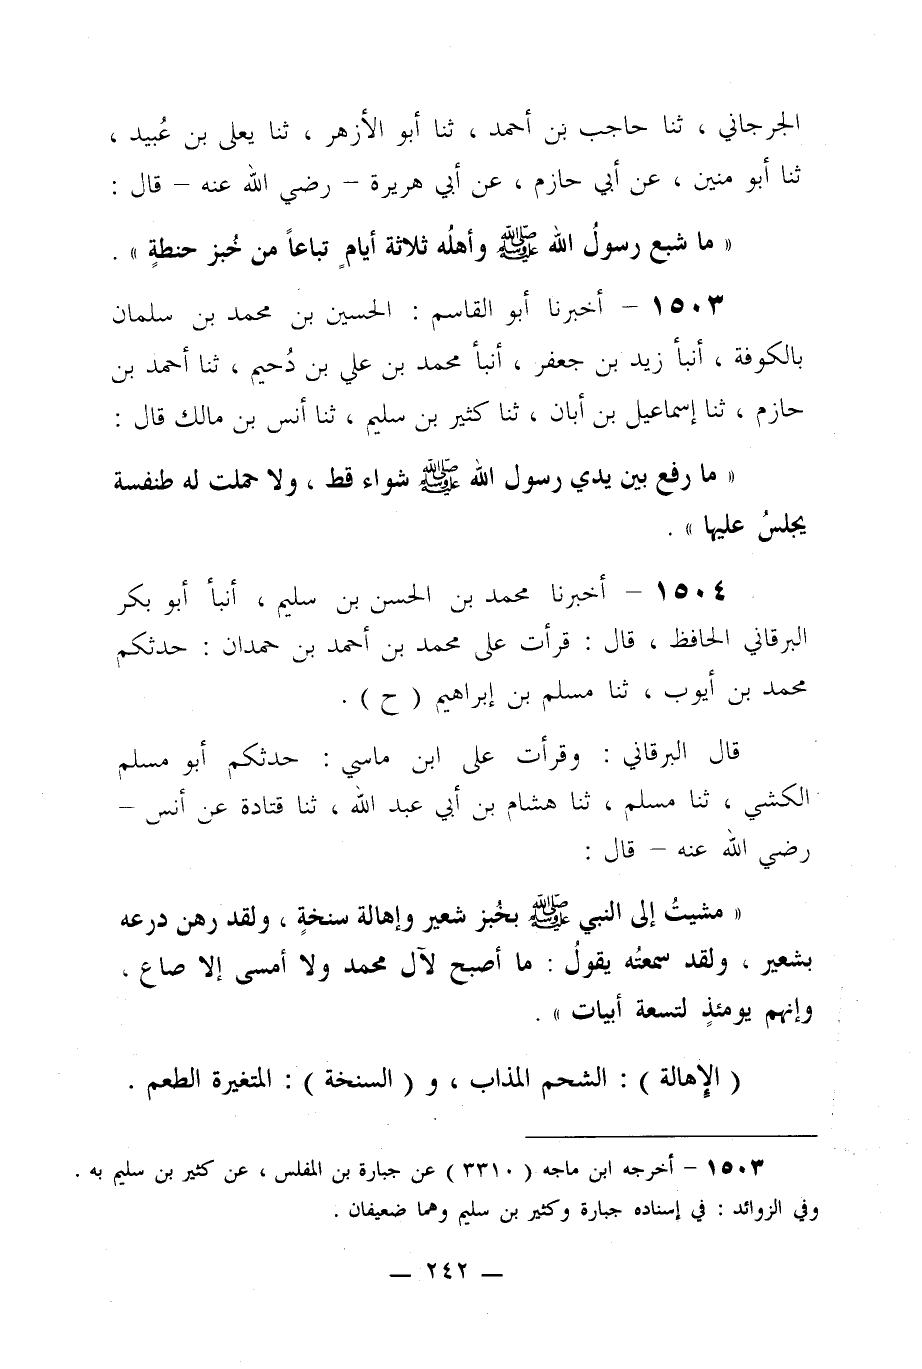 الجرجاني ، ثنا حاجب بن أحمد ، ثنا أبو الأزهر ، ثنا يعلى بن عُبيد ،
ثنا أبو منين ، عن أبي حازم ، عن أبي هريرة – رضي الله عنه – قال :
« ما شبع رسولُ الله ﷺ وأهلُه ثلاثة أيامٍ تباعاً من خُبز حنطةٍ » .
١٥٠٣ – أخبرنا أبو القاسم : الحسين بن محمد بن سلمان
بالكوفة ، أنبأ زيد بن جعفر ، أنبأ محمد بن علي بن دُحيم ، ثنا أحمد بن
حازم ، ثنا إسماعيل بن أبان ، ثنا كثير بن سليم ، ثنا أنس بن مالك قال :
« ما رفع بين يدي رسول الله ﷺ شواء قط ، ولا حملت له طنفسة
يجلسُ عليها » .
١٥٠٤ – أخبرنا محمد بن الحسن بن سليم ، أنبأ أبو بكر
البرقاني الحافظ ، قال : قرأت على محمد بن أحمد بن حمدان : حدثكم
محمد بن أيوب ، ثنا مسلم بن إبراهيم ( ح ) .
قال البرقاني : وقرأت على ابن ماسي : حدثكم أبو مسلم
الكشي ، ثنا مسلم ، ثنا هشام بن أبي عبد الله ، ثنا قتادة عن أنس –
رضي الله عنه – قال :
« مشيتُ إلى النبي ﷺ بخُبز شعير وإهالة سنخةٍ ، ولقد رهن درعه
بشعير ، ولقد سمعتُه يقولُ : ما أصبح لآل محمد ولا أمسى إلا صاع ،
وإنهم يومئذٍ لتسعة أبيات » .
( الإهالة ) : الشحم المذاب ، و ( السنخة ) : المتغيرة الطعم .
١٥٠٣ – أخرجه ابن ماجه ( ٣٣١٠ ) عن جبارة بن المفلس ، عن كثير بن سليم به .
وفي الزوائد : في إسناده جبارة وكثير بن سليم وهما ضعيفان .
— ٢٤٢ —